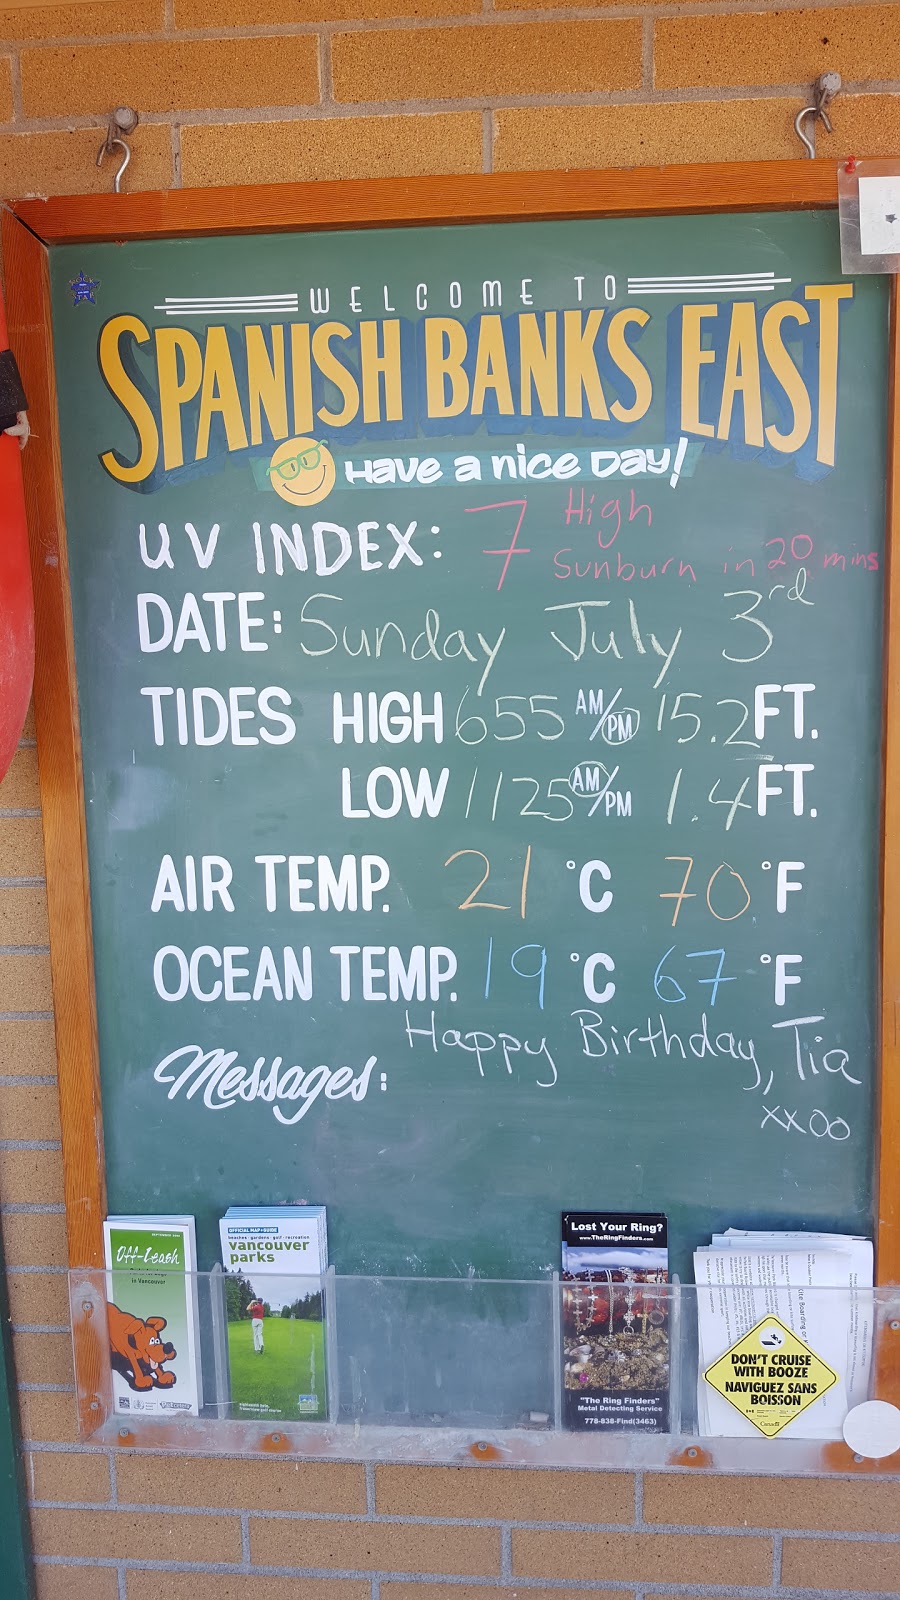 WELCOME TO
SPANISH BANKS EAST
Have a nice Day!
UV INDEX: 7 High
Sunburn in 20 mins
DATE: Sunday July 3rd
TIDES HIGH 655 AM/PM 15.2 FT.
LOW 1125 AM/PM 1.4 FT.
AIR TEMP. 21 °C 70 °F
OCEAN TEMP. 19 °C 67 °F
Happy Birthday, Tia
Messages:
xxoo
Off-Leash
in Vancouver
OFFICIAL MAP & GUIDE
beaches · gardens · golf · recreation
vancouver
parks
Lost Your Ring?
www.TheRingFinders.com
"The Ring Finders"
Metal Detecting Service
778-838-Find(3463)
DON'T CRUISE
WITH BOOZE
NAVIGUEZ SANS
BOISSON
Canada